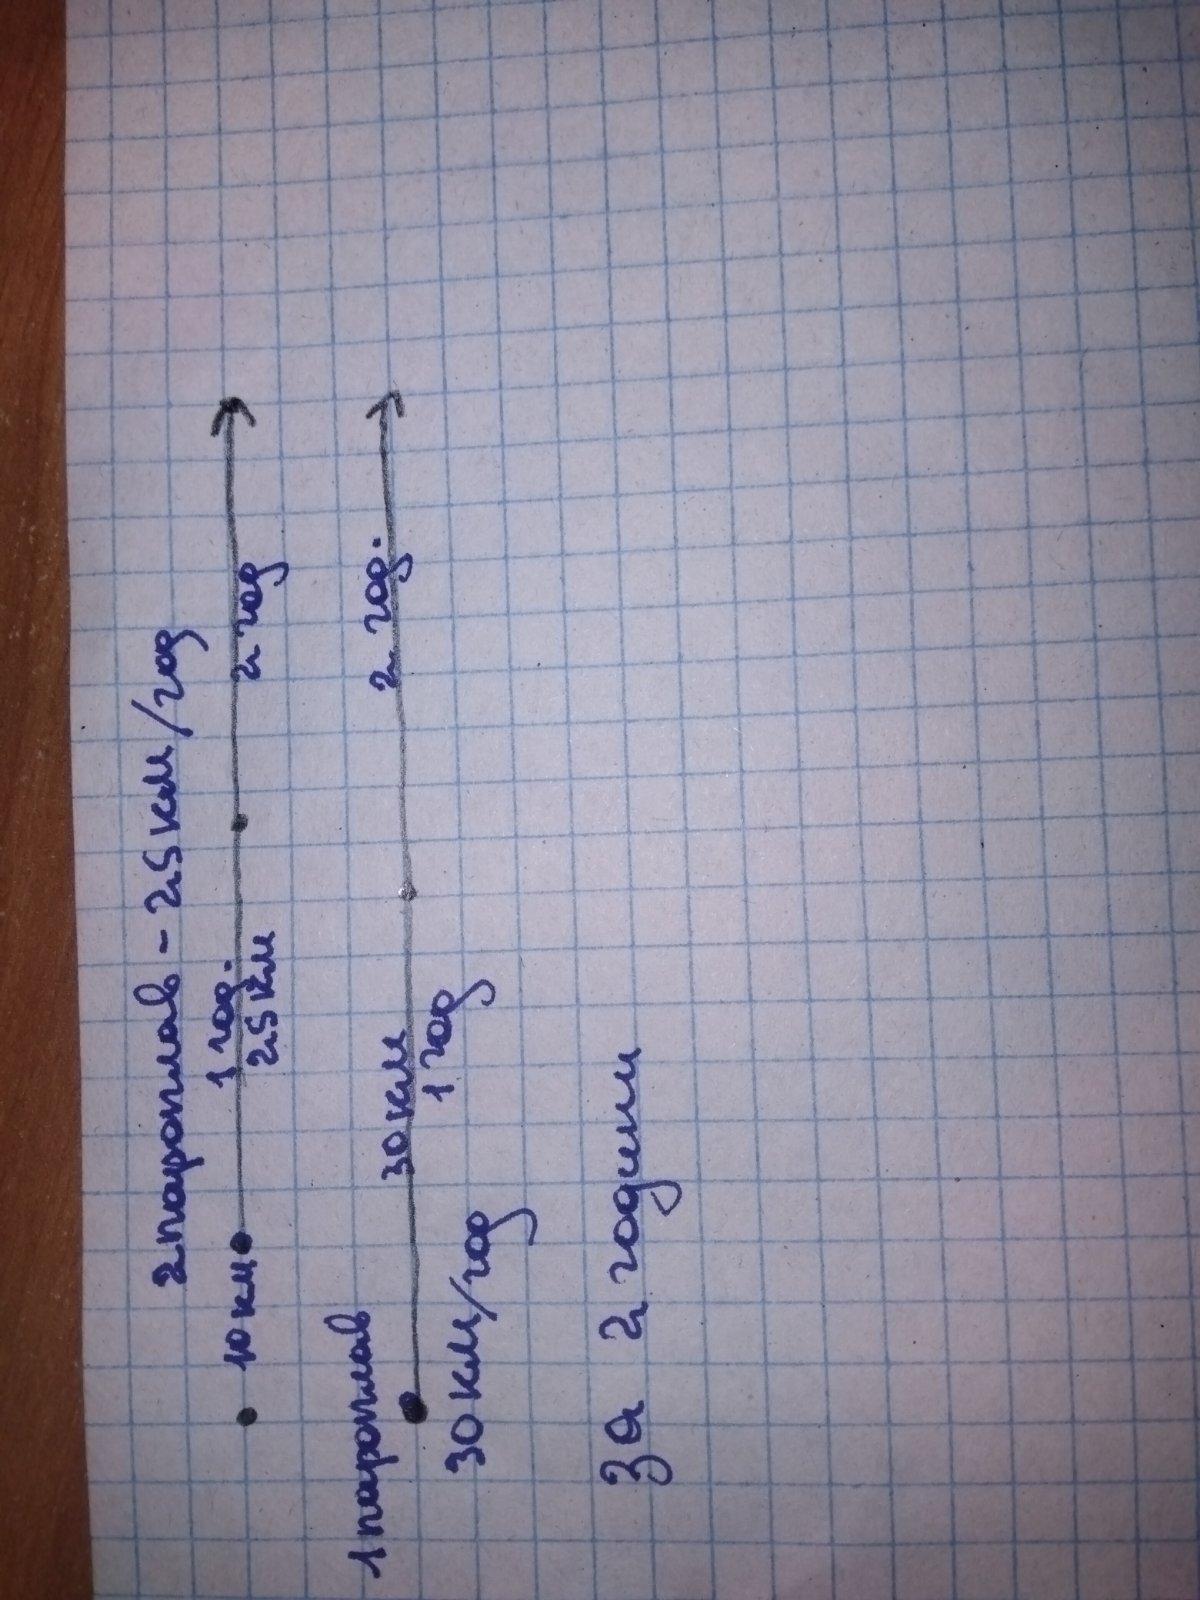 2 пароплав - 25 км/год
1 год.
10 км
25 км
2 год
1 пароплав
30 км
2 год.
1 год
30 км/год
За 2 години